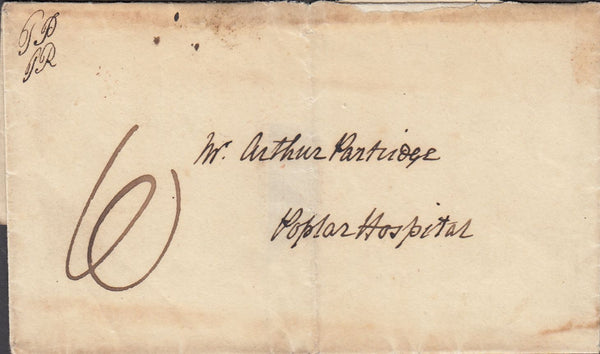 TP
TR
6
Mr. Arthur Partridge
Poplar Hospital